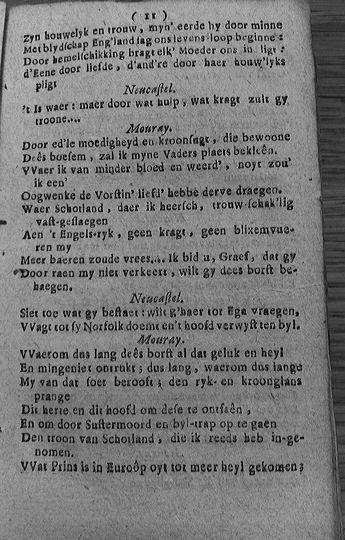 ( 11 )
Zyn houwelyk en trouw, myn' eerde hy door minne
Met blydschap Eng'land sag ons levens-loop beginne:
Door hemelschikking bragt elk' Moeder ons in ligt:
d'Eene door liefde, d'and're door haer houw'lyks
pligt
Neucastel.
't Is waer: maer door wat hulp, wat kragt zult gy
troone....
Mouray.
Door ed'le moedigheyd en kroonsugt, die bewoone
Deês boesem, zal ik myne Vaders plaets bekleên.
VVaer ik van minder bloed en weerd', noyt zou'
ik een'
Oogwenke de Vorstin' liefd' hebbe derve draegen.
Waer Schotland, daer ik heersch, trouw-schak'lig
vast-geslaegen
Aen 't Engels-ryk, geen kragt, geen blixemvue-
ren my
Meer baeren zoude vrees.... Ik bid u, Graef, dat gy
Door raen my niet verkeert, wilt gy dees borst be-
haegen.
Neucastel.
Siet toe wat gy bestaet: wilt g'haer tot Ega vraegen,
VVagt tot sy Norfolk doemt en't hoofd verwyst ten byl.
Mouray.
VVaerom dus lang deês borst al dat geluk en heyl
En mingeniet ontrukt; dus lang, waerom dus lange
My van dat soet berooft; den ryk- en kroonglans
prange
Dit herte en dit hoofd om dese te ontfaên,
En om door Sustermoord en byl-trap op te gaen
Den troon van Schotland, die ik reeds heb in-ge-
nomen.
VVat Prins is in Europ oyt tot meer heyl gekomen;